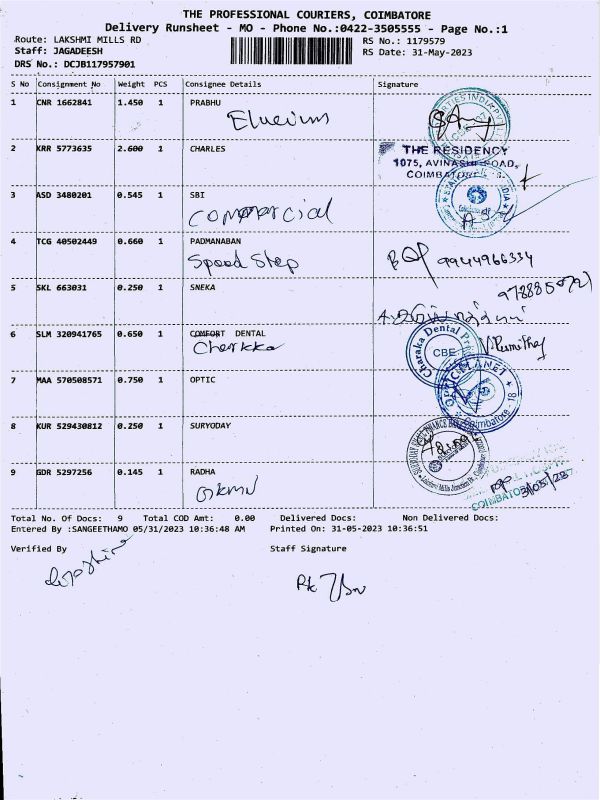 THE PROFESSIONAL COURIERS, COIMBATORE
Delivery Runsheet - MO - Phone No.:0422-3505555 - Page No.:1
Route: LAKSHMI MILLS RD
RS No.: 1179579
Staff: JAGADEESH
RS Date: 31-May-2023
DRS No.: DCJB117957901
S No Consignment No Weight PCS Consignee Details Signature
1 CNR 1662841 1.450 1 PRABHU
2 KRR 5773635 2.600 1 CHARLES
THE RESIDENCY
1075, AVINASHI ROAD,
3 ASD 3480201 0.545 1 SBI
Commercial
4 TCG 40502449 0.660 1 PADMANABAN
Speed Step
9944966334
5 SKL 663031 0.250 1 SNEKA
6 SLM 320941765 0.650 1 COMFORT DENTAL
Charaka Dental
CBE
7 MAA 570508571 0.750 1 OPTIC
OPTIC PLANET
Coimbatore - 18
8 KUR 529430812 0.250 1 SURYODAY
9 GDR 5297256 0.145 1 RADHA
Total No. Of Docs: 9 Total COD Amt: 0.00 Delivered Docs: Non Delivered Docs:
Entered By :SANGEETHAMO 05/31/2023 10:36:48 AM Printed On: 31-05-2023 10:36:51
Verified By Staff Signature